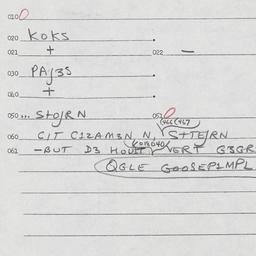 010 0
020 KOKS
021 + 022 —
030 PAJ3S
040 +
050 ... STOJRN 051 0
(466(467
060 CIT C12AM3N N, STTEJRN
061 -BUT D3 HOUTT VERT G3GR
QGLE GOOSEP1MPL